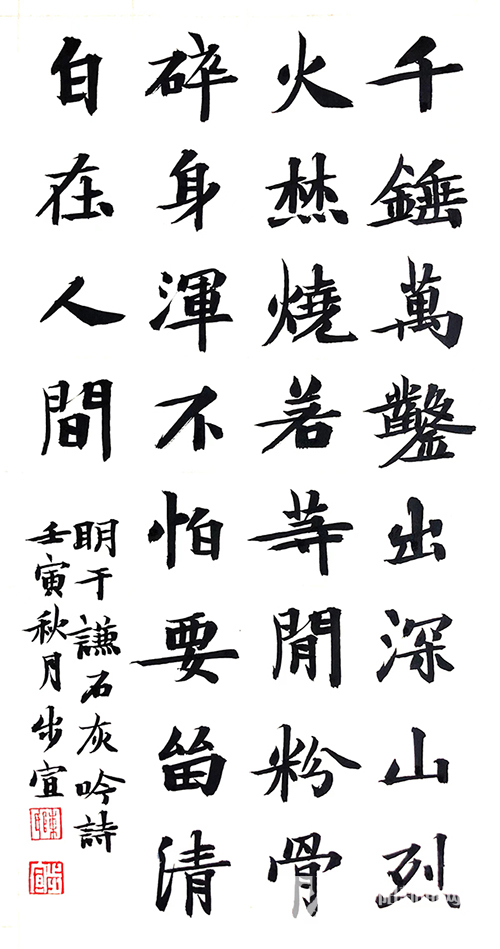 千錘萬鑿出深山列
火焚燒若等閒粉骨
碎身渾不怕要留清
白在人間
明于謙石灰吟詩
壬寅秋月步宣